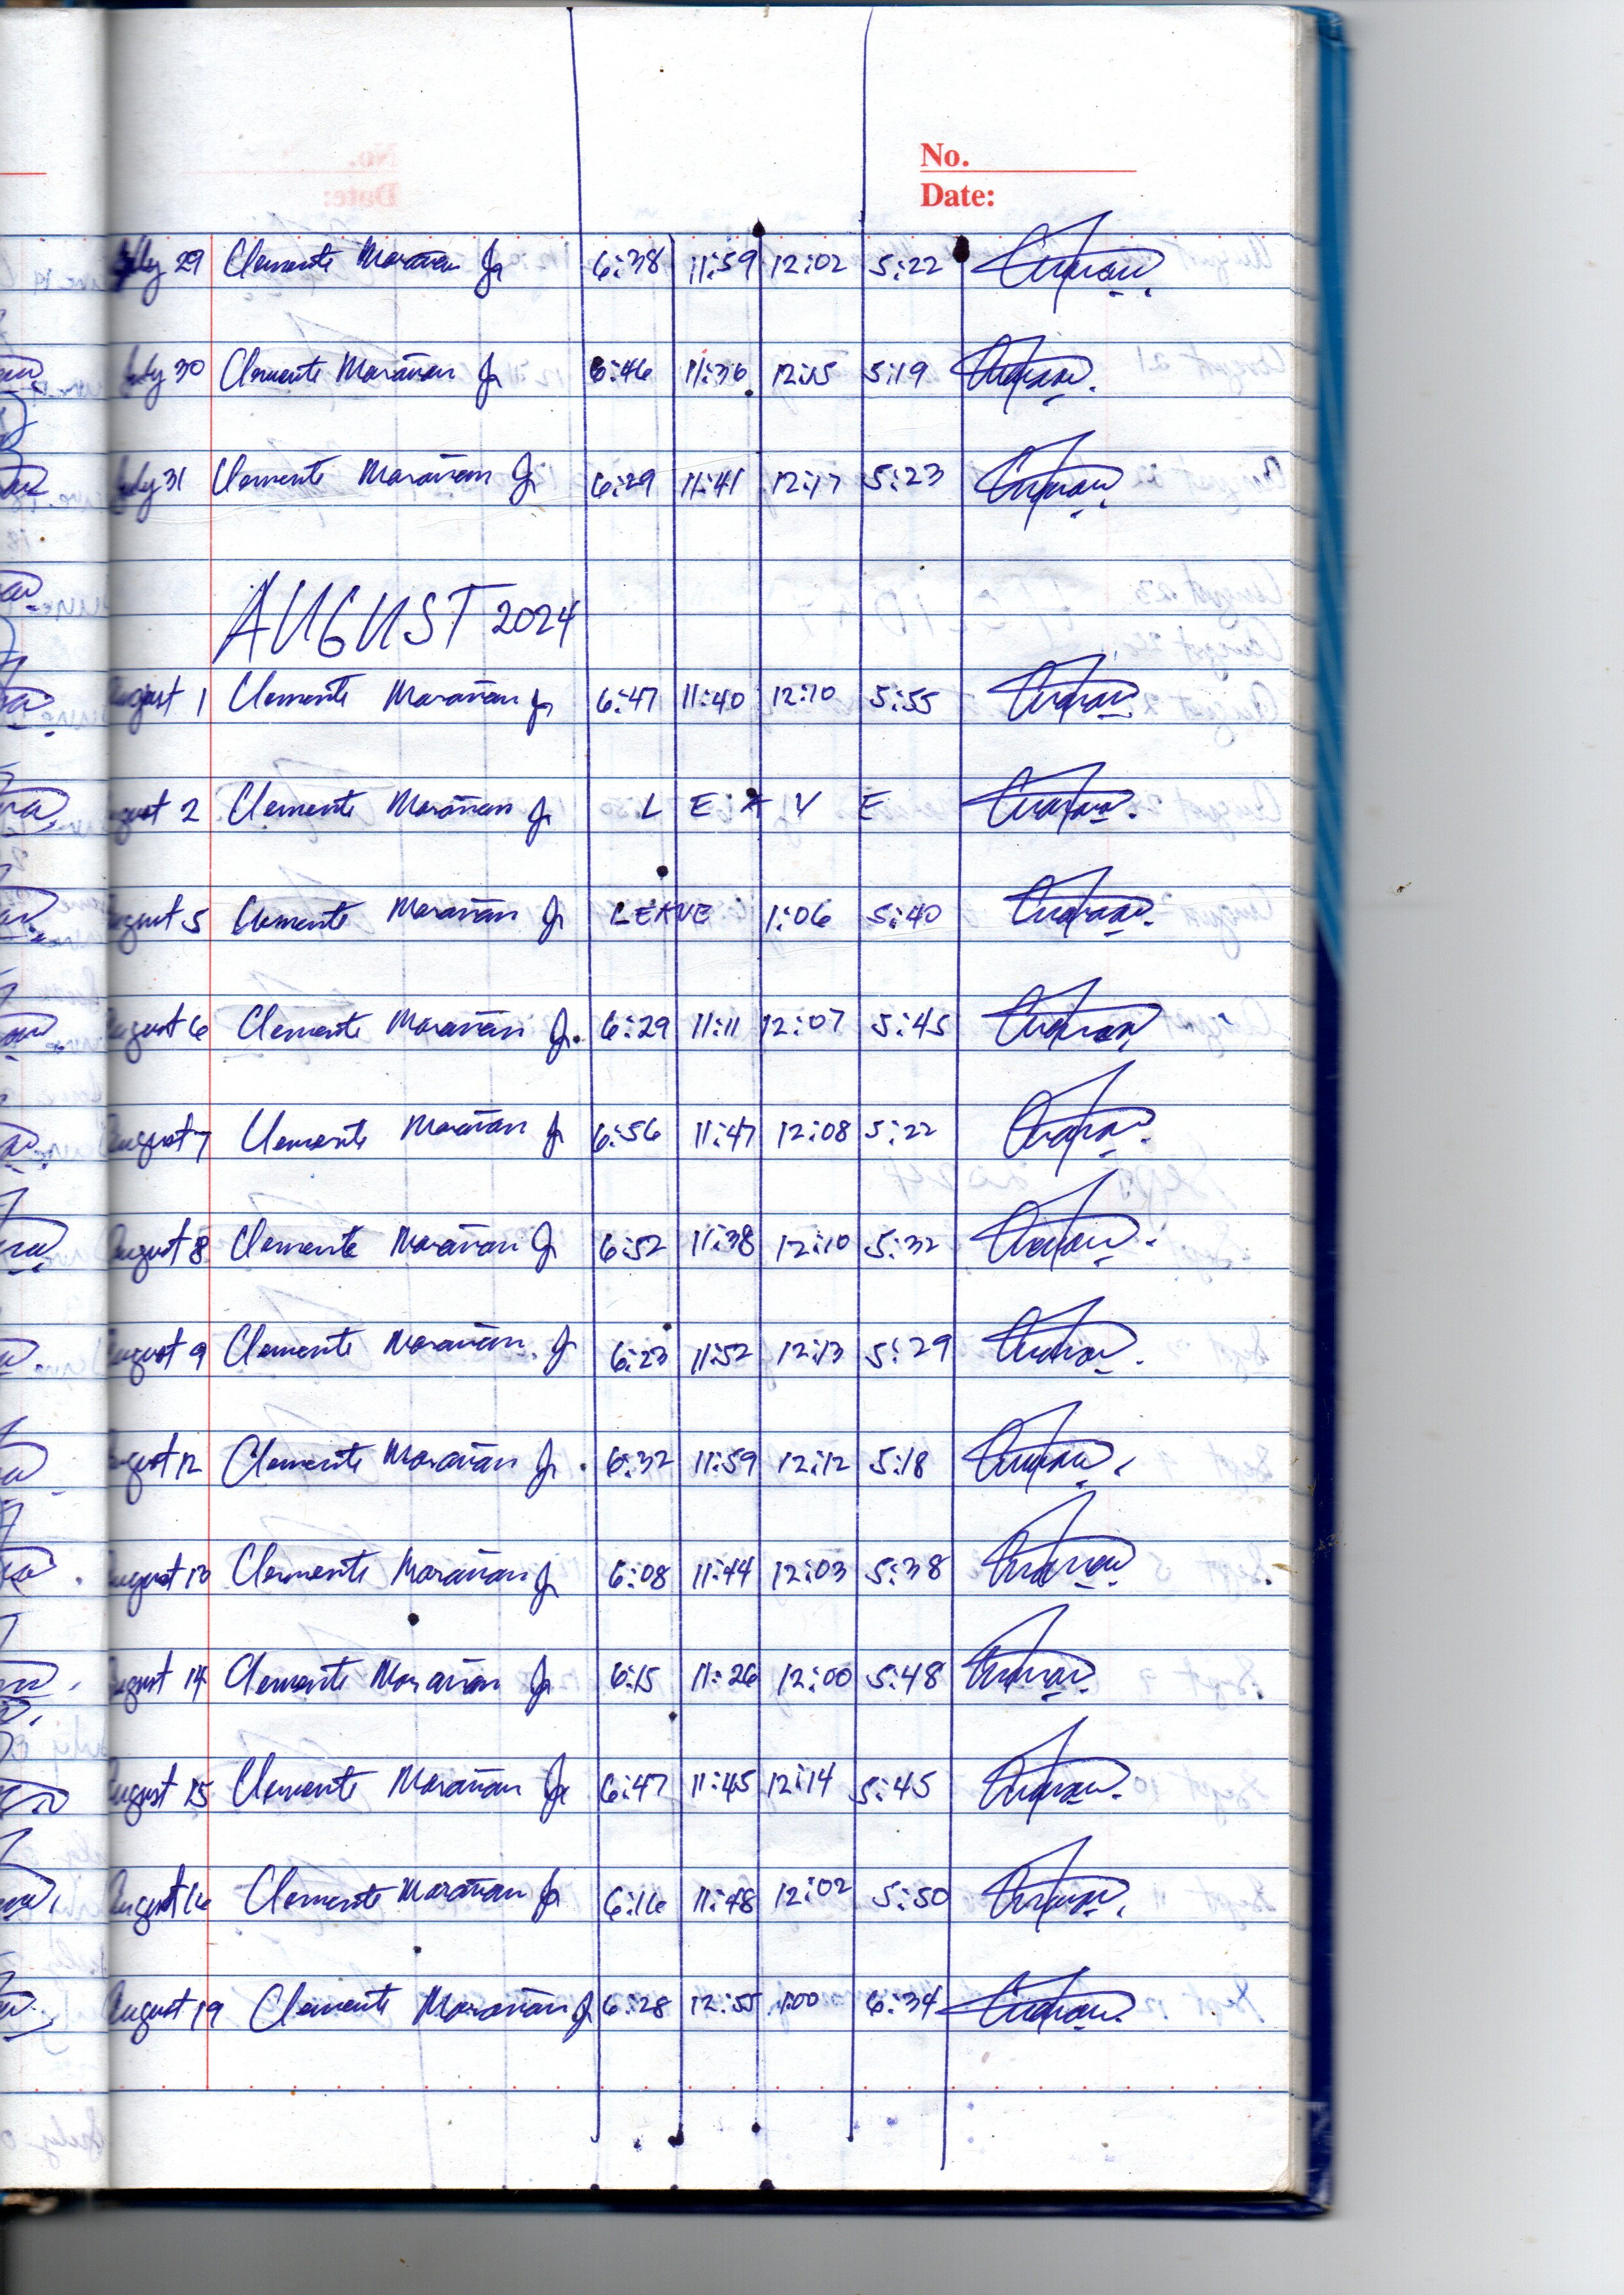 No.
Date:
July 29 Clemente Marañan Jr 6:38 11:59 12:02 5:22
July 30 Clemente Marañan Jr 6:46 11:36 12:15 5:19
July 31 Clemente Marañan Jr 6:29 11:41 12:17 5:23
AUGUST 2024
August 1 Clemente Marañan Jr 6:47 11:40 12:10 5:55
August 2 Clemente Marañan Jr L E A V E
August 5 Clemente Marañan Jr LEAVE 1:06 5:40
August 6 Clemente Marañan Jr. 6:29 11:11 12:07 5:45
August 7 Clemente Marañan Jr 6:56 11:47 12:08 5:22
August 8 Clemente Marañan Jr 6:52 11:38 12:10 5:32
August 9 Clemente Marañan Jr 6:23 11:52 12:13 5:29
August 12 Clemente Marañan Jr. 6:32 11:59 12:12 5:18
August 13 Clemente Marañan Jr 6:08 11:44 12:03 5:38
August 14 Clemente Marañan Jr 6:15 11:26 12:00 5:48
August 15 Clemente Marañan Jr 6:47 11:45 12:14 5:45
August 16 Clemente Marañan Jr 6:16 11:48 12:02 5:50
August 19 Clemente Marañan Jr 6:28 12:55 1:00 6:34